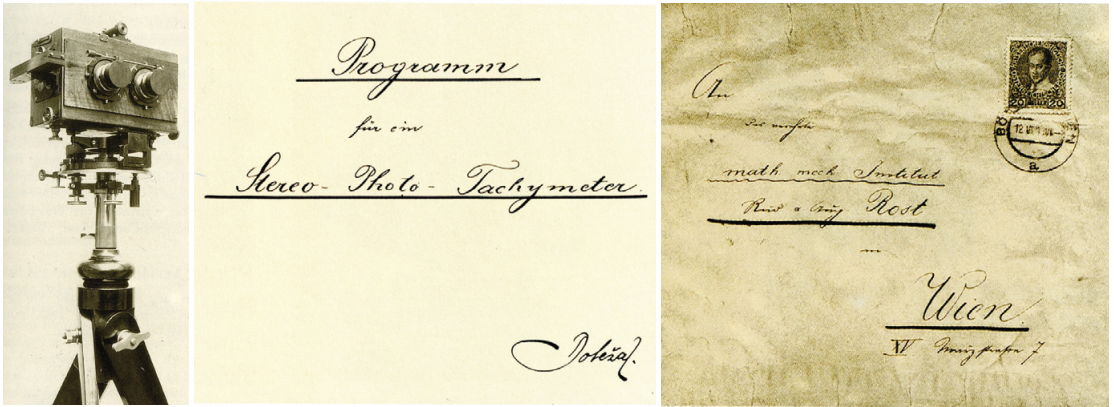 Programm
für ein
Stereo-Photo-Tachymeter.
Doležal.
An
math mech Institut
Rud & Aug Rost
in
Wien
XV 7
20 20
12
a